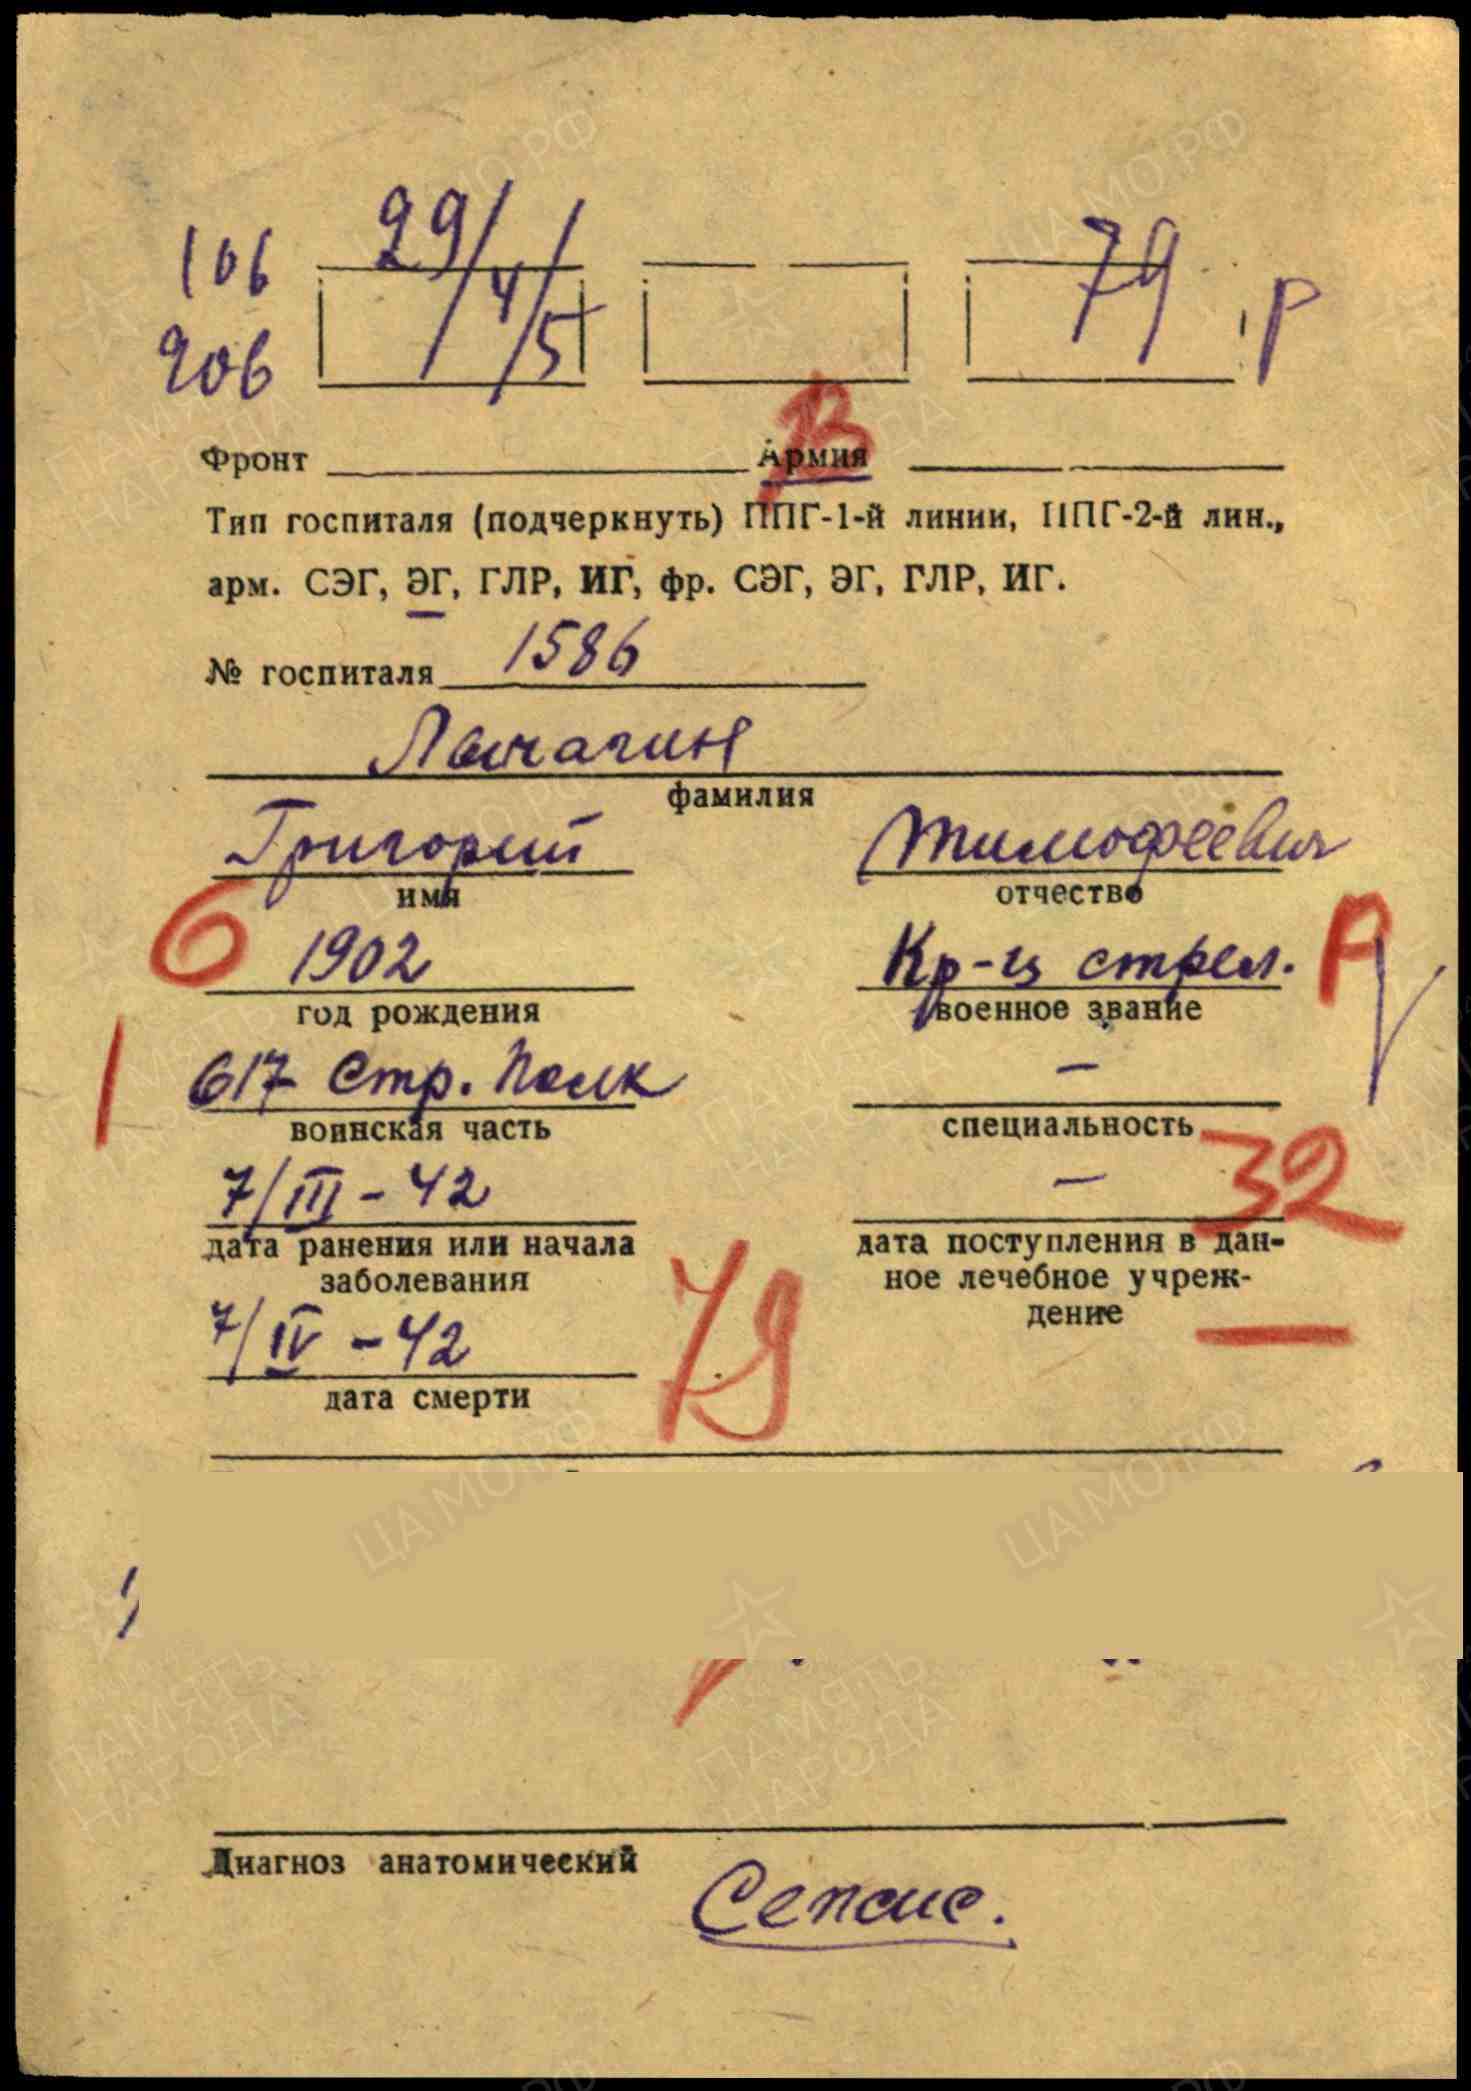 106 29/4/5 79 р
206
В
Фронт Армия
Тип госпиталя (подчеркнуть) ППГ-1-й линии, ППГ-2-й лин.,
арм. СЭГ, ЭГ, ГЛР, ИГ, фр. СЭГ, ЭГ, ГЛР, ИГ.
№ госпиталя 1586
фамилия
Григорий Тимофеевич
имя отчество
6 1902 Кр-ц стрел. А
год рождения военное звание
1 617 Стр. Полк –
воинская часть специальность
7/III – 42 – 32
дата ранения или начала дата поступления в дан-
заболевания ное лечебное учреж-
дение
7/IV – 42 79
дата смерти
Диагноз анатомический
Сепсис.
ЦАМО.РФ
ПАМЯТЬ
НАРОДА